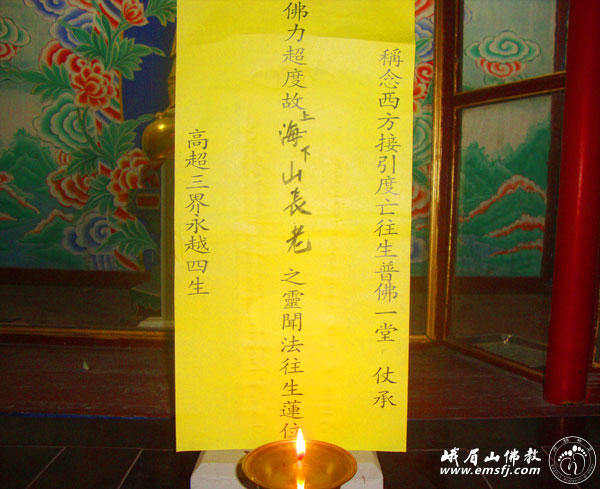 稱念西方接引度亡往生普佛一堂 仗承
佛力超度故上海下山長老之靈聞法往生蓮位
高超三界永越四生
峨眉山佛教
www.emsfj.com